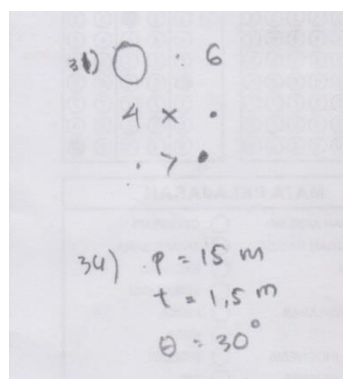 31) O : 6
4 x .
. > .
34) P = 15 m
t = 1,5 m
θ = 30°